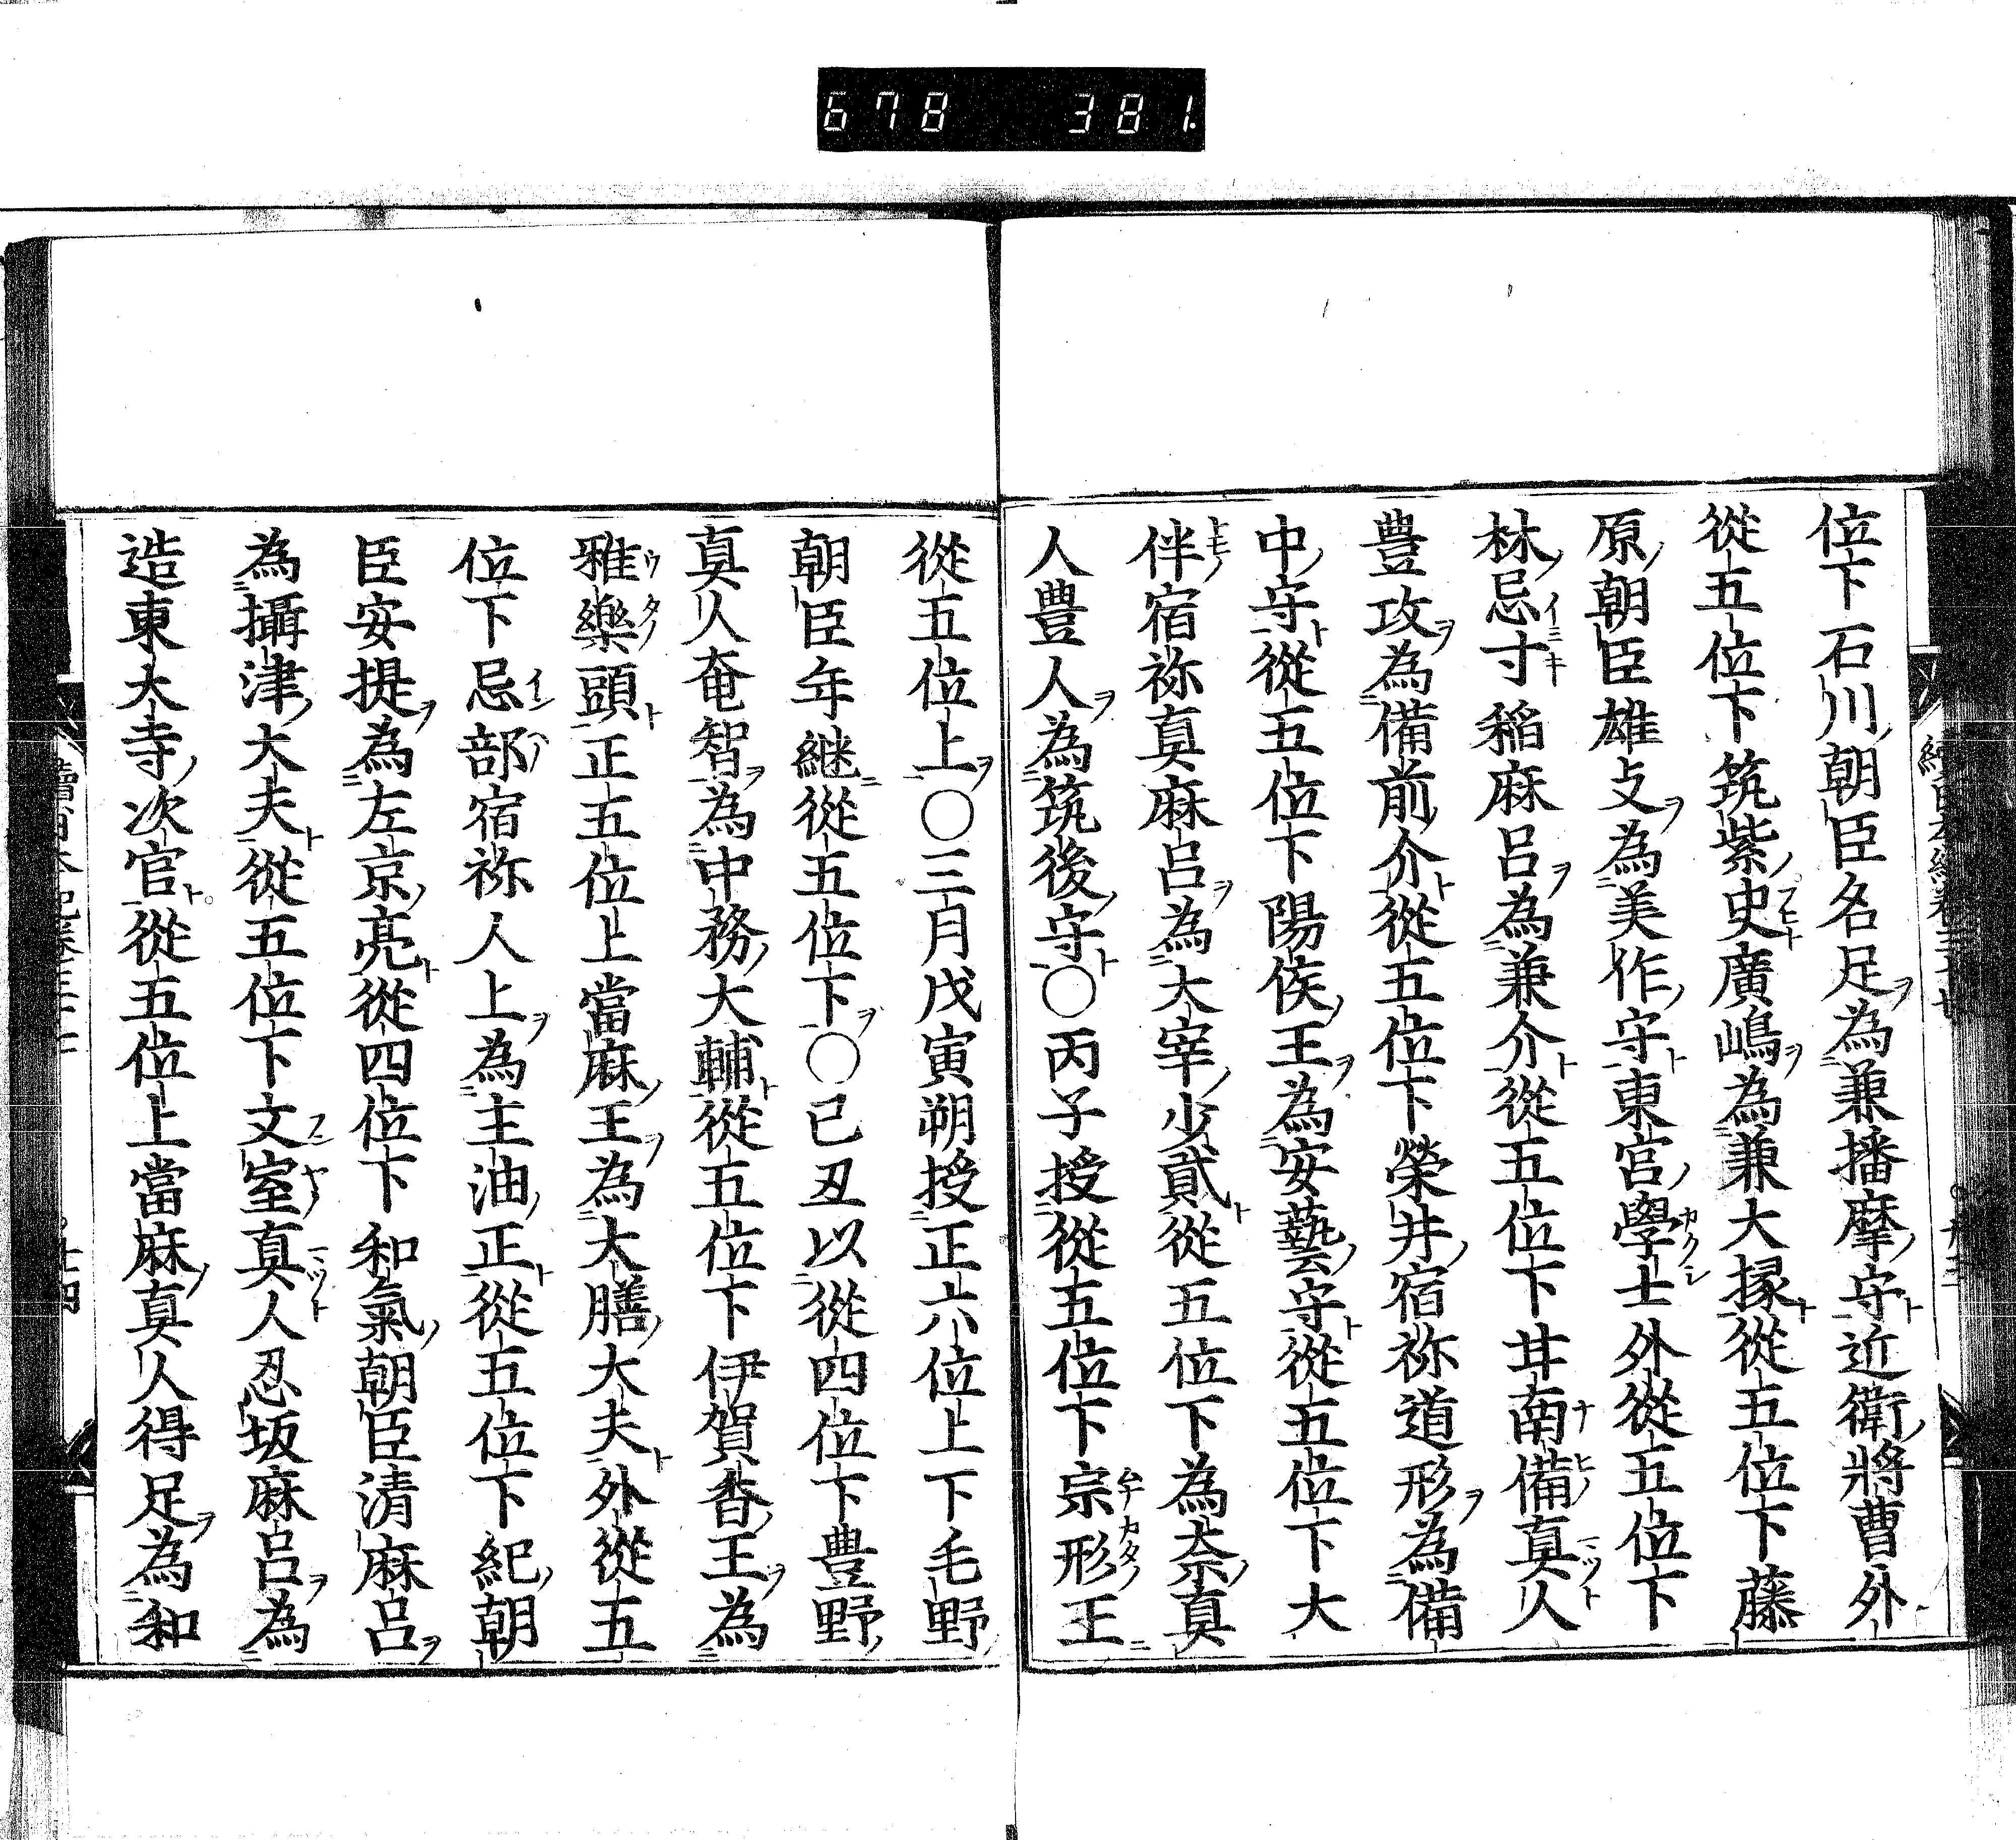 678 381.
位下石川朝臣名足為兼播摩守近衛將曹外
從五位下筑紫史廣嶋為兼大掾從五位下藤
原朝臣雄攴為美作守東宮學士外從五位下
林忌寸稲麻呂為兼介從五位下甘南備真人
豊攻為備前介從五位下榮井宿祢道形為備
中守從五位下陽侯王為安藝守從五位下大
伴宿祢真麻呂為大宰少貳從五位下為奈真
人豊人為筑後守〇丙子授從五位下宗形王
從五位上〇三月戊寅朔授正六位上下毛野
朝臣年継從五位下〇己丑以從四位下豊野
真人奄智為中務大輔從五位下伊賀香王為
雅樂頭正五位上當麻王為大膳大夫外從五
位下忌部宿祢人上為主油正從五位下紀朝
臣安提為左京亮從四位下和氣朝臣清麻呂
為攝津大夫從五位下文室真人忍坂麻呂為
造東大寺次官從五位上當麻真人得足為和